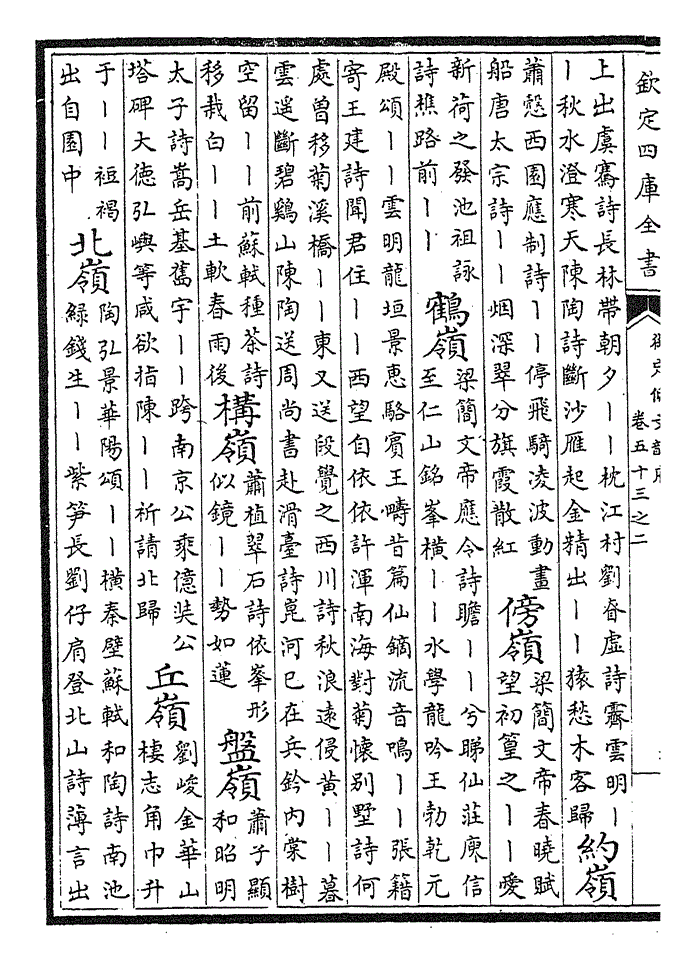 欽定四庫全書
御定佩文韻府
卷五十三之二
上出虞騫詩長林帶朝夕丨丨枕江村劉眘虛詩霽雲明丨
丨秋水澄寒天陳陶詩斷沙雁起金精出丨丨猿愁木客歸
約嶺
蕭慤西園應制詩丨丨停飛騎凌波動畫
船唐太宗詩丨丨烟深翠分旗霞散紅
傍嶺
梁簡文帝春曉賦
望初篁之丨丨愛
新荷之發池祖詠
詩樵路前丨丨
鶴嶺
梁簡文帝應令詩瞻丨丨兮睇仙莊庾信
至仁山銘峯橫丨丨水學龍吟王勃乾元
殿頌丨丨雲明龍垣景惠駱賓王疇昔篇仙鏑流音鳴丨丨張籍
寄王建詩聞君住丨丨西望自依依許渾南海對菊懷别墅詩何
處曾移菊溪橋丨丨東又送段覺之西川詩秋浪遠侵黃丨丨暮
雲遥斷碧鷄山陳陶送周尚書赴滑臺詩崑河已在兵鈐内棠樹
空留丨丨前蘇軾種茶詩
移栽白丨丨土軟春雨後
構嶺
蕭植翠石詩依峯形
似鏡丨丨勢如蓮
盤嶺
蕭子顯
和昭明
太子詩嵩岳基舊宇丨丨跨南京公乘億奘公
塔碑大德弘嶼等咸欲指陳丨丨祈請北歸
丘嶺
劉峻金華山
棲志角巾升
于丨丨袒褐
出自園中
北嶺
陶弘景華陽頌丨丨橫秦壁蘇軾和陶詩南池
緑錢生丨丨紫笋長劉仔肩登北山詩薄言出